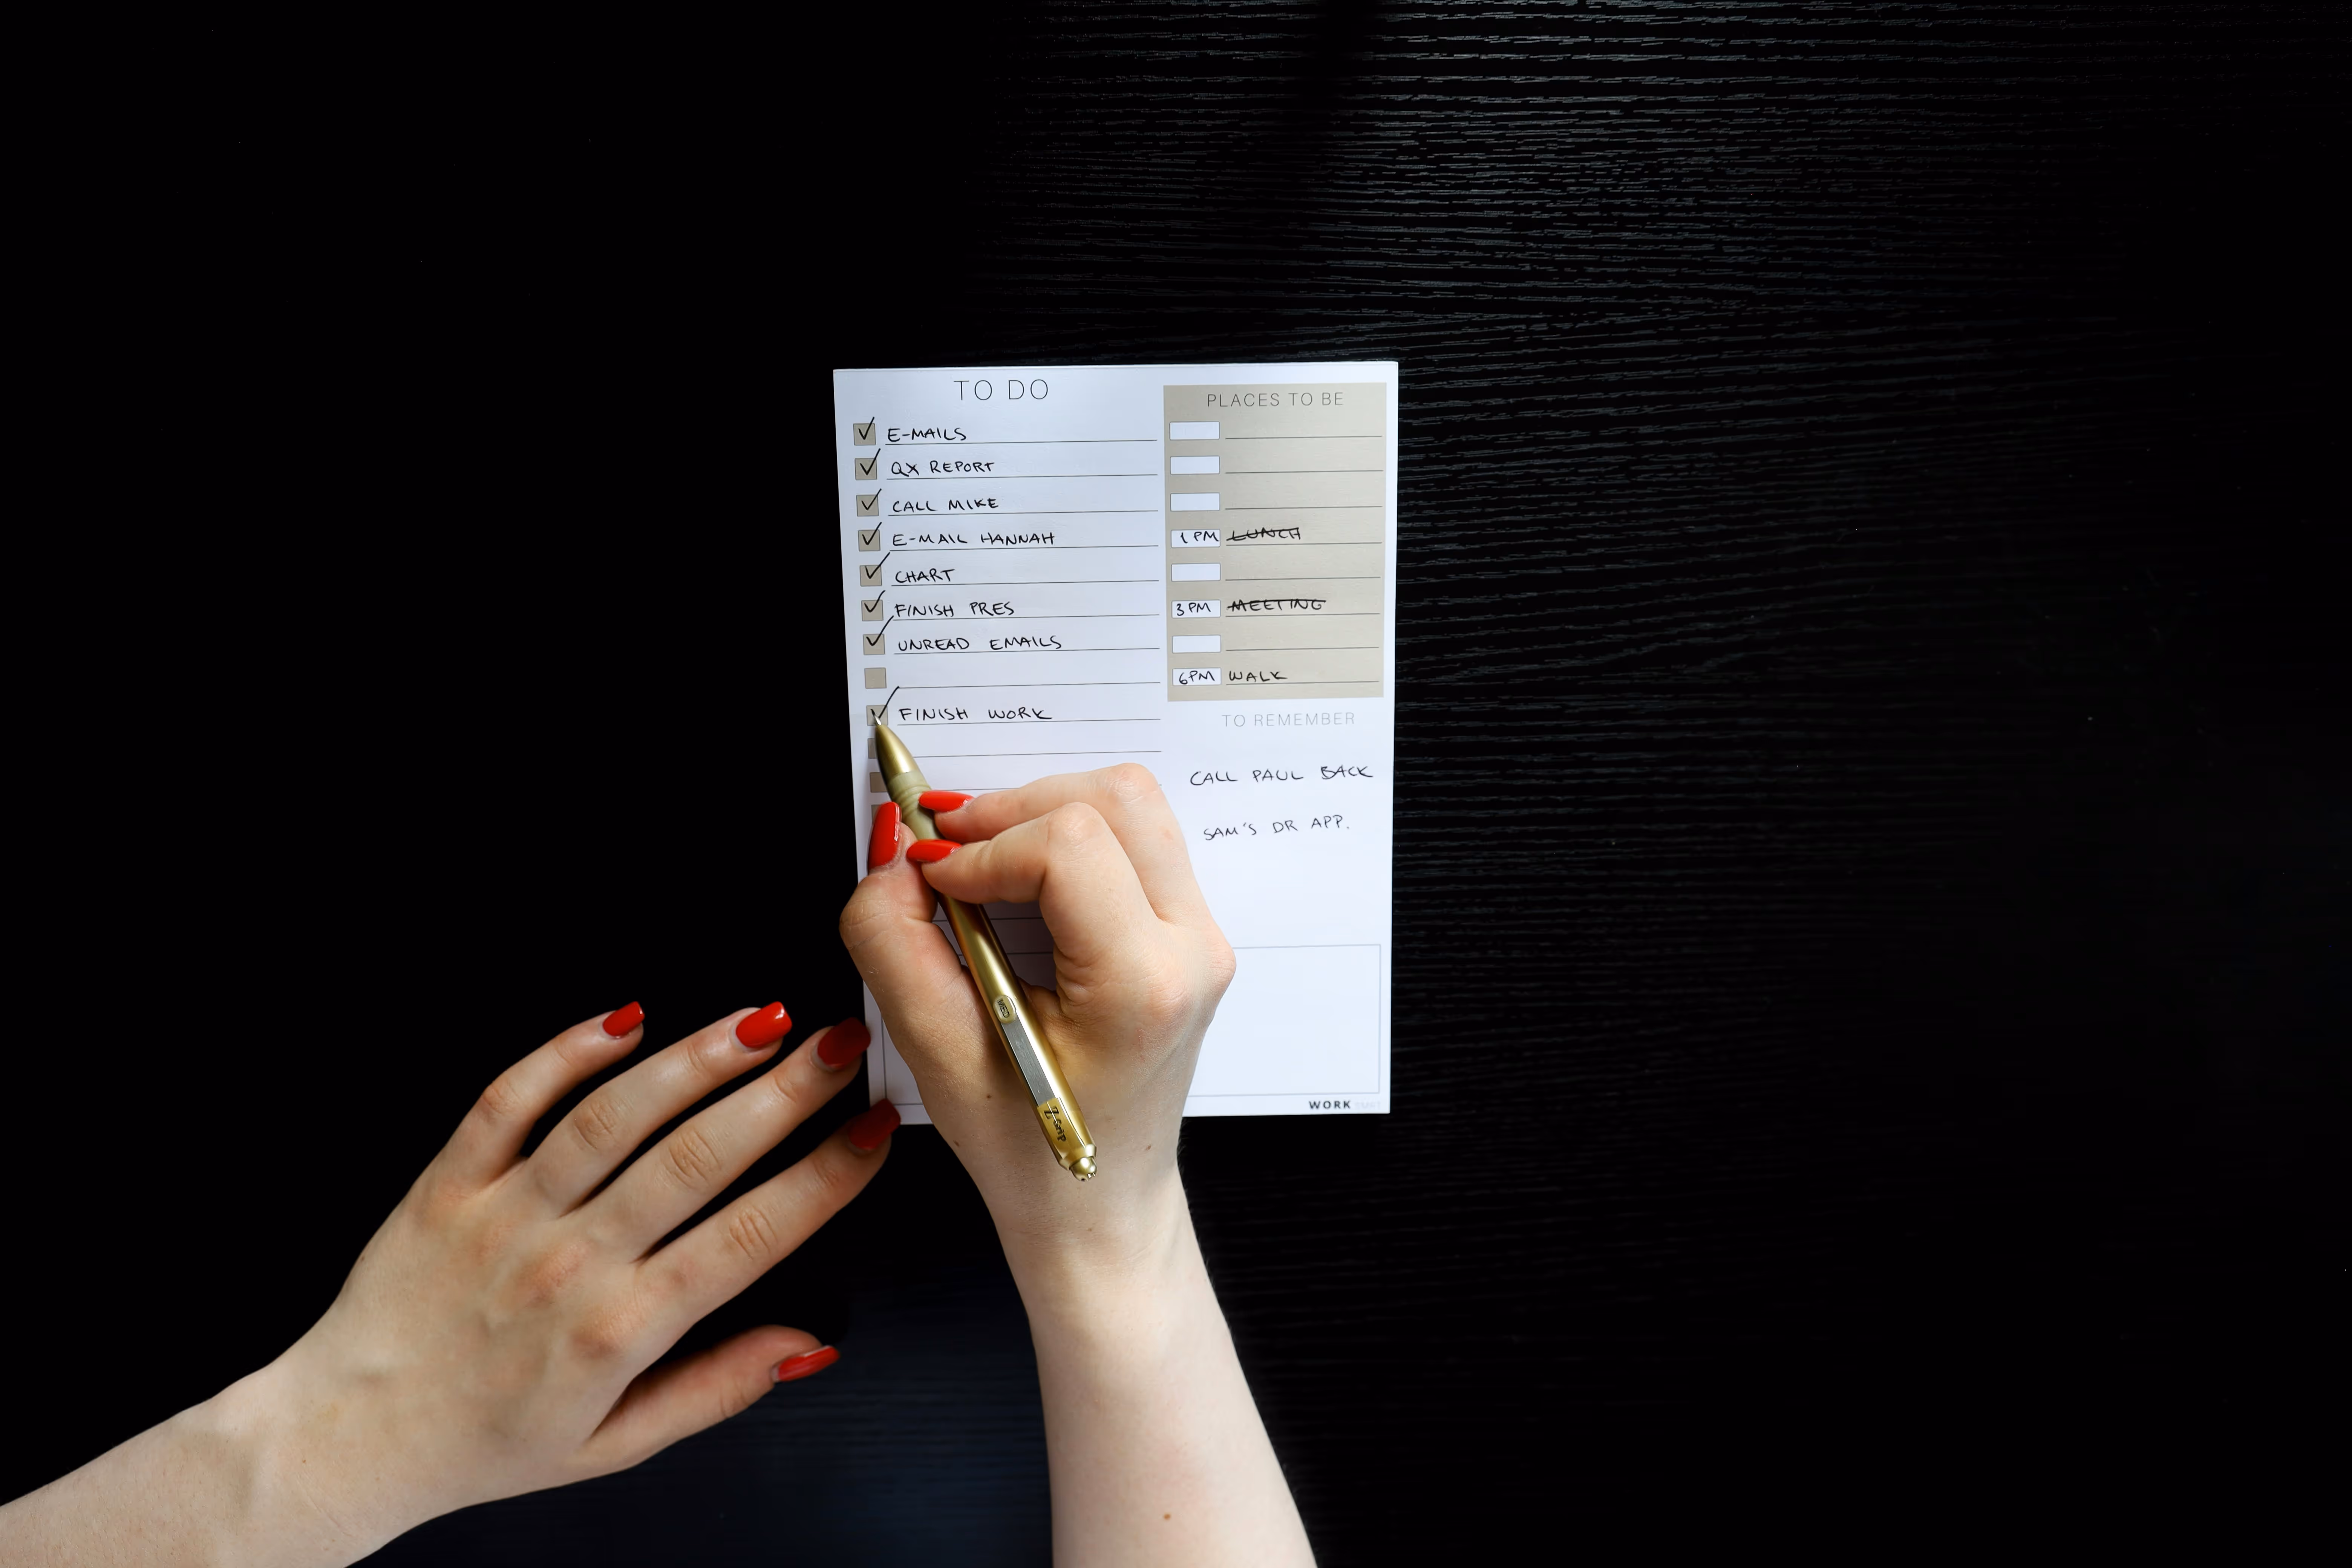 TO DO
E-MAILS
QX REPORT
CALL MIKE
E-MAIL HANNAH
CHART
FINISH PRES
UNREAD EMAILS
FINISH WORK
PLACES TO BE
1 PM LUNCH
3 PM MEETING
6PM WALK
TO REMEMBER
CALL PAUL BACK
SAM'S DR APP.
WORK
Z-GRIP